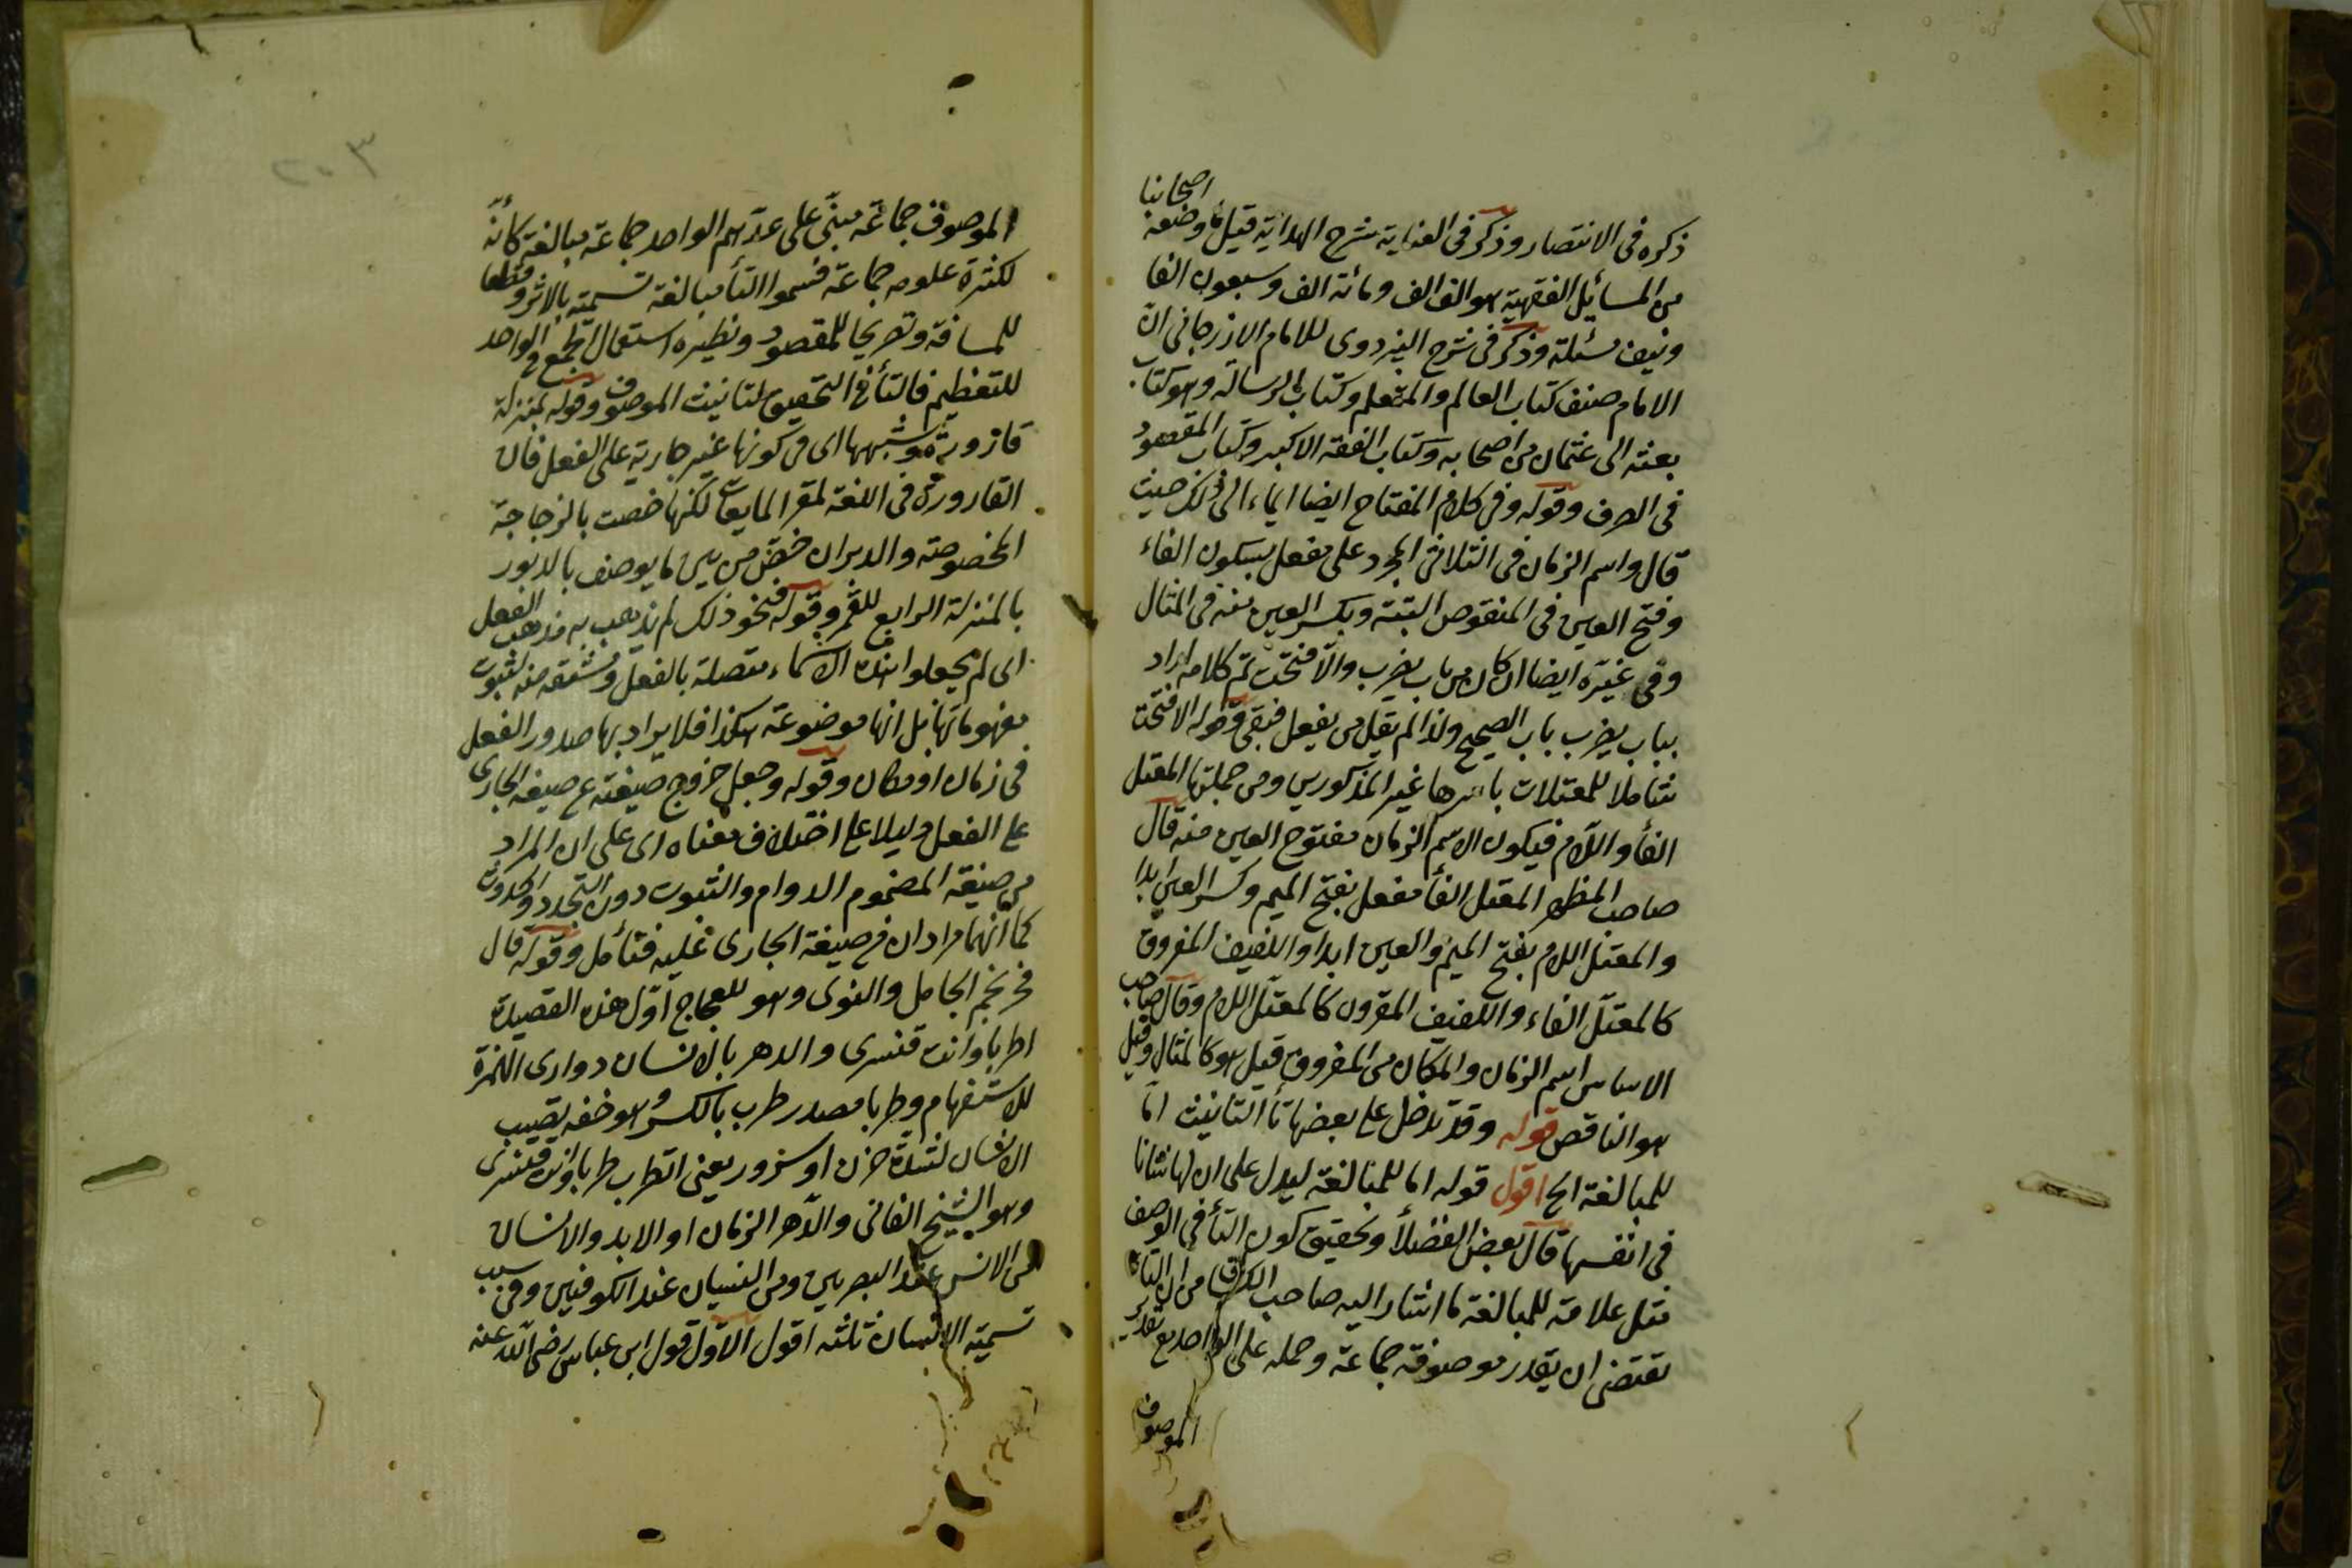 اصحابنا
ذكره فى الانتصار وذكر فى العناية شرح الهداية قيل ما وضعه
من المسائل الفقهية هو الف الف ومائة الف وسبعون الفا
ونيف مسئلة وذكر فى شرح البزدوى للامام الازرجانى ان
الامام صنف كتاب العالم والمتعلم وكتاب الرسالة وهو كتاب
بعثه الى عثمان من اصحابه وكتاب الفقه الاكبر وكتاب المقصود
فى الصرف وقوله وفى كلام المفتاح ايضا ايماء الى ذلك حيث
قال واسم الزمان فى الثلاثى المجرد على مفعل بسكون الفاء
وفتح العين فى المنقوص البتة وبكسر العين منه فى المثال
وفى غيره ايضا ان كان من باب يضرب والا فتحت تم كلامه اراد
بباب يضرب باب الصحيح ولذا لم يقل من يفعل فبقى قوله الا فتحت
متناملا للمعتلات باسرها غير المذكورين ومن جملتها المعتل
الفأ واللام فيكون الاسم الزمان مفتوح العين منه قال
صاحب المظهر المعتل الفأ مفعل بفتح الميم وكسر العين ابدا
والمعتل اللام بفتح الميم والعين ابدا واللفيف المفروق
كالمعتل الفاء واللفيف المقرون كالمعتل اللام وقال صاحب
الاساس اسم الزمان والمكان من المفروق قيل هو كالمثال وقيل
هو الناقص قوله وقد تدخل على بعضها تأ التانيث اما
للمبالغة الخ اقول قوله اما للمبالغة ليدل على ان لها شانا
فى انفسها قال بعض الفضلأ وتحقيق كون التأ فى الوصف
مثل علامة للمبالغة ما اشار اليه صاحب من ان التاء
تقتضى ان يقدر موصوفه جماعة وحمله على الواحد مع تقدير
الموصوف
٢٠٣
الموصوف جماعة مبنى على عدهم الواحد جماعة مبالغة كانه
لكثرة علومه جماعة فسموا التأ مبالغة تسمية بالاثر وقطعا
للمسافة وتصريحا للمقصود ونظيره استعمال الجمع فى الواحد
للتعظيم فالتأ فى التحقيق لتانيث الموصوف وقوله بمنزلة
قارورة وشبهها اى فى كونها غير جارية على الفعل فان
القارورة فى اللغة لمقر المايعات لكنها خصت بالزجاجة
المخصوصة والدبران خص من بين ما يوصف بالدبور
بالمنزلة الرابع للقمر وقوله فنحو ذلك لم يذهب به مذهب الفعل
اى لم يجعلوا هذه الاسماء متصلة بالفعل ومشتقه منه لثبوت
مفهوماتها بل انها موضوعة هكذا فلا يراد بها صدور الفعل
فى زمان او مكان وقوله وجعل خروج صيغته عن صيغة الجارى
على الفعل دليلا على اختلاف معناه اى على ان المراد
من صيغة المضموم الدوام والثبوت دون التجدد والحدوث
كما انهما مرادان فى صيغة الجارى عليه فتأمل وقوله قال
فخر نجم الجامل والنوى وهو للعجاج اول هذه القصيدة
اطربا وانت قنسرى والدهر بالانسان دوارى الهمزة
للاستفهام وطربا مصدر طرب بالكسر وهو خفه تصيب
الانسان لشدة حزن او سرور يعنى اتطرب طربا وانت قنسرى
وهو الشيخ الفانى والدهر الزمان او الابد والانسان
من الانس عند البصريين ومن النسيان عند الكوفيين وفى سبب
تسمية الانسان ثلثه اقول الاول قول ابن عباس رضى الله عنه